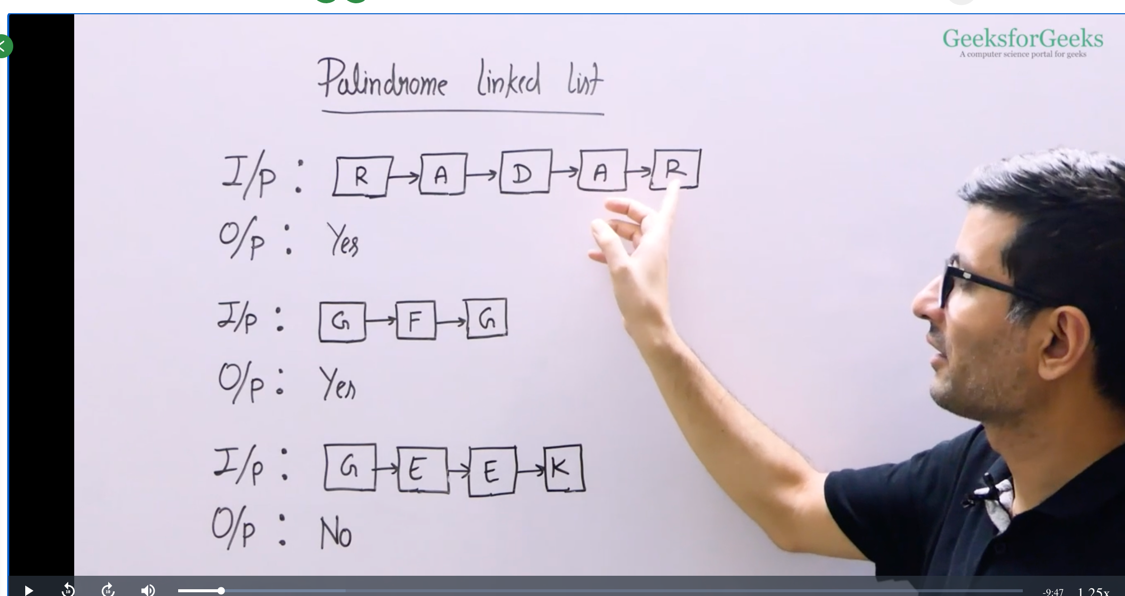 GeeksforGeeks
A computer science portal for geeks
Palindrome linked list
I/p : R → A → D → A → R
O/p : Yes
I/p : G → F → G
O/p : Yes
I/p : G → E → E → K
O/p : No
-9:47 1.25x